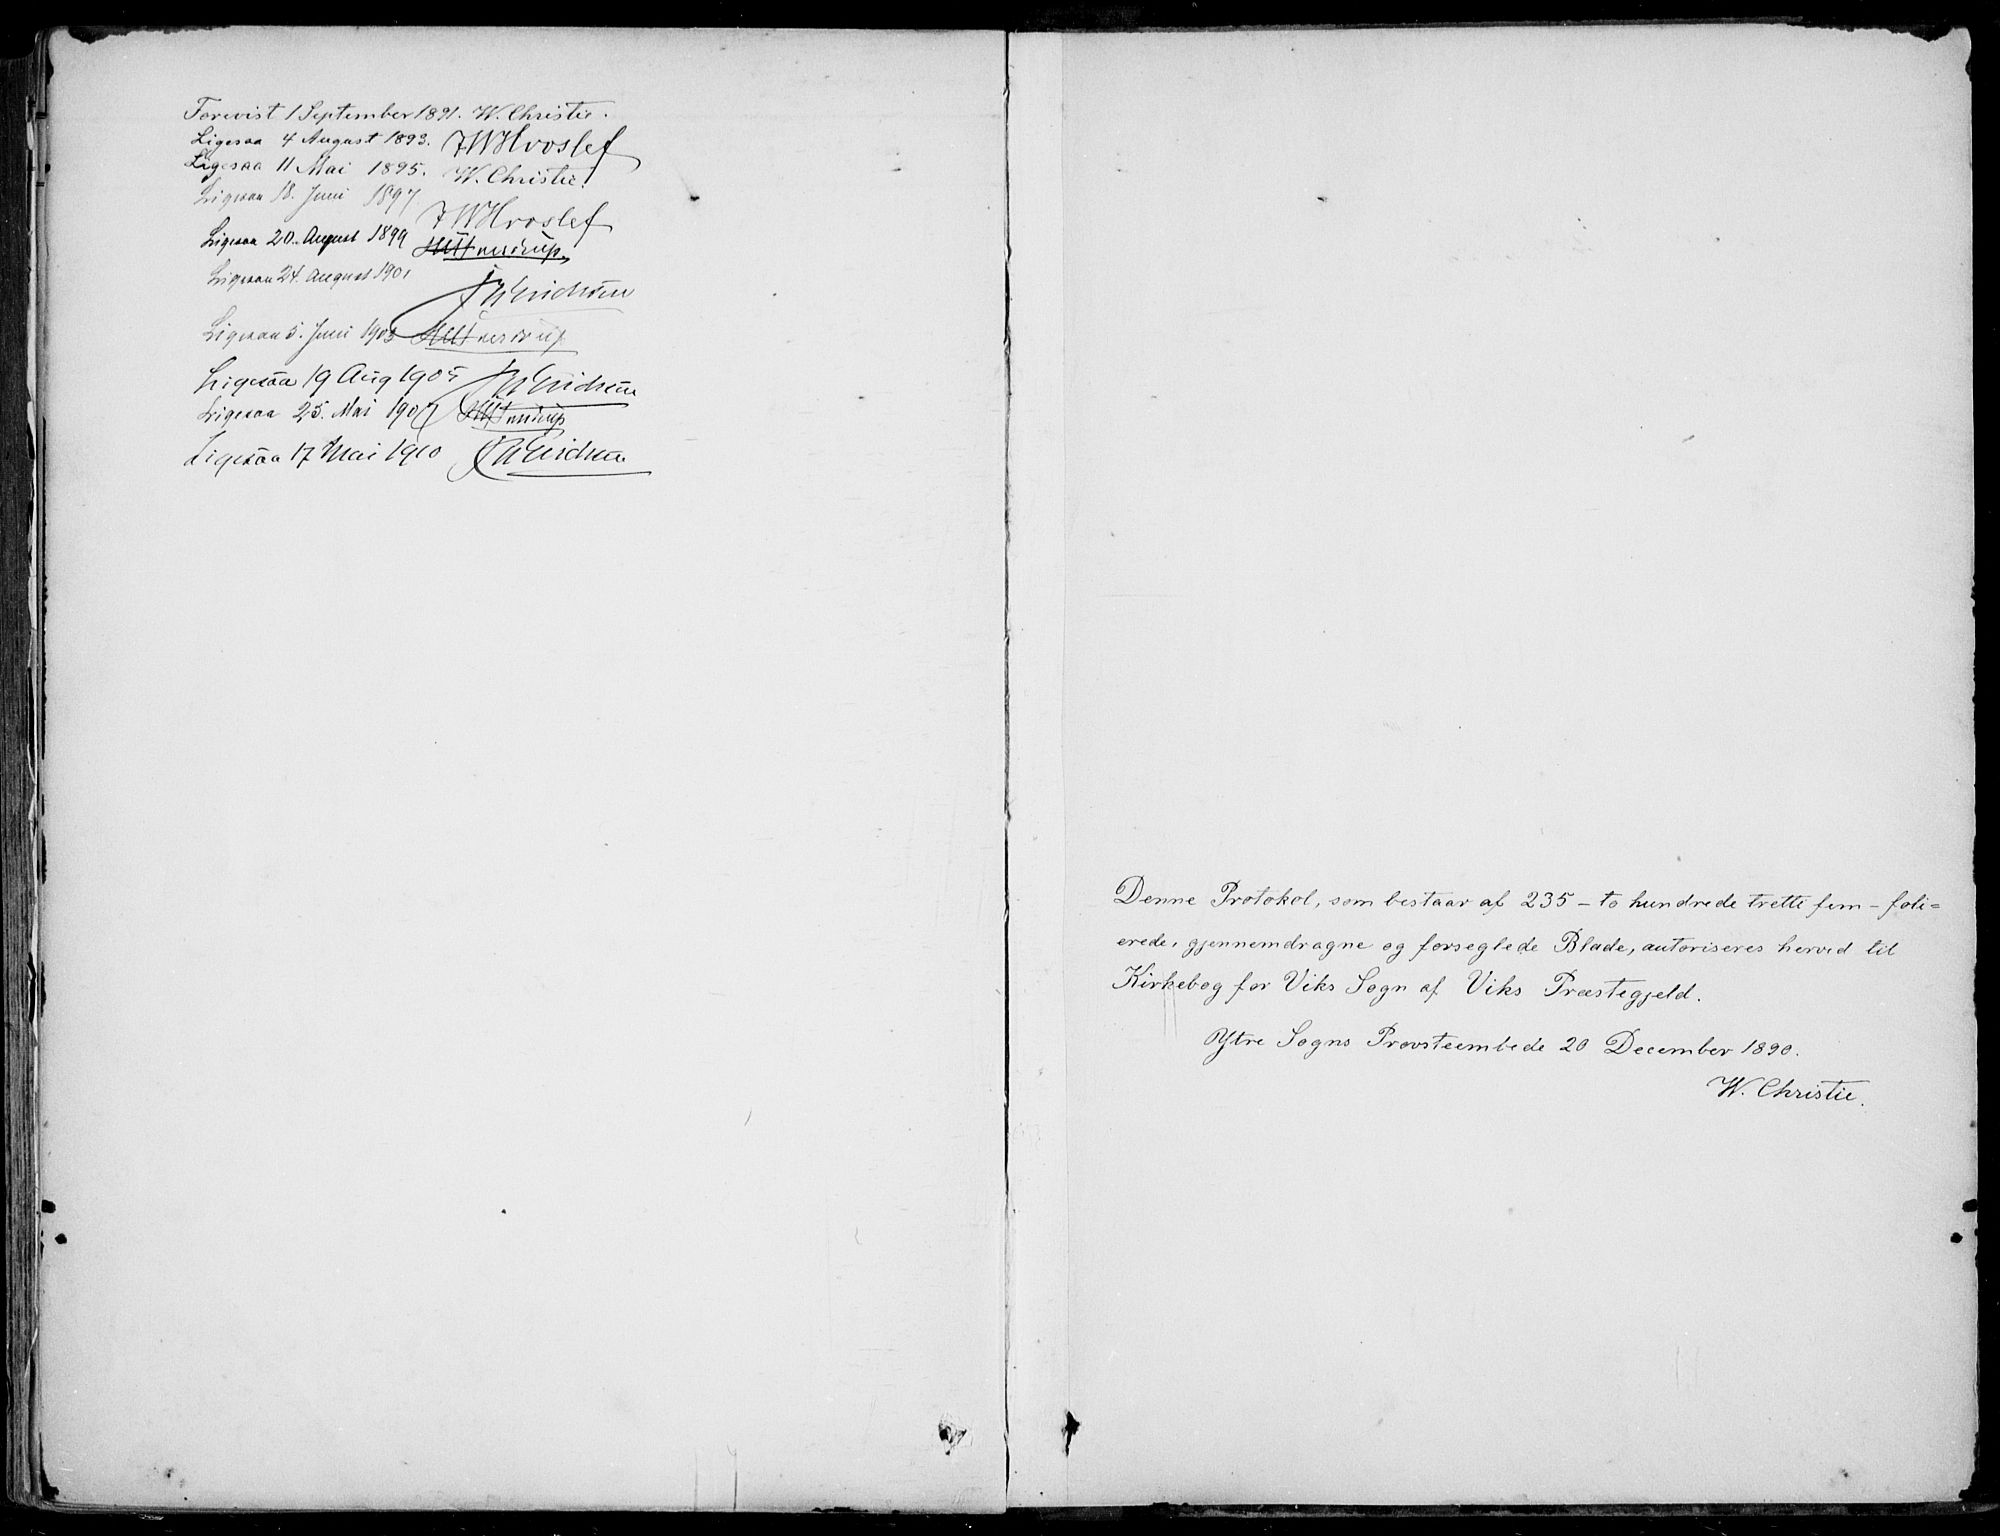 Forevist 1 September 1891. W. Christie.
Ligesaa 4 August 1893. FWHvoslef
Ligesaa 11 Mai 1895. W. Christie.
Ligesaa 18. Juni 1897. FWHvoslef
Ligesaa 20. August 1899
Ligesaa 24. August 1901
Ligesaa 5. Juni 1903
Ligesaa 19 Aug 1905
Ligesaa 25. Mai 1907
Ligesaa 17 Mai 1910
Denne Protokol, som bestaar af 235 – to hundrede tretti fem – foli=
erede, gjennemdragne og forseglede Blade, autoriseres herved til
Kirkebog for Viks Sogn af Viks Præstegjeld.
Ytre Sogns Provsteembede 20 December 1890.
W. Christie.